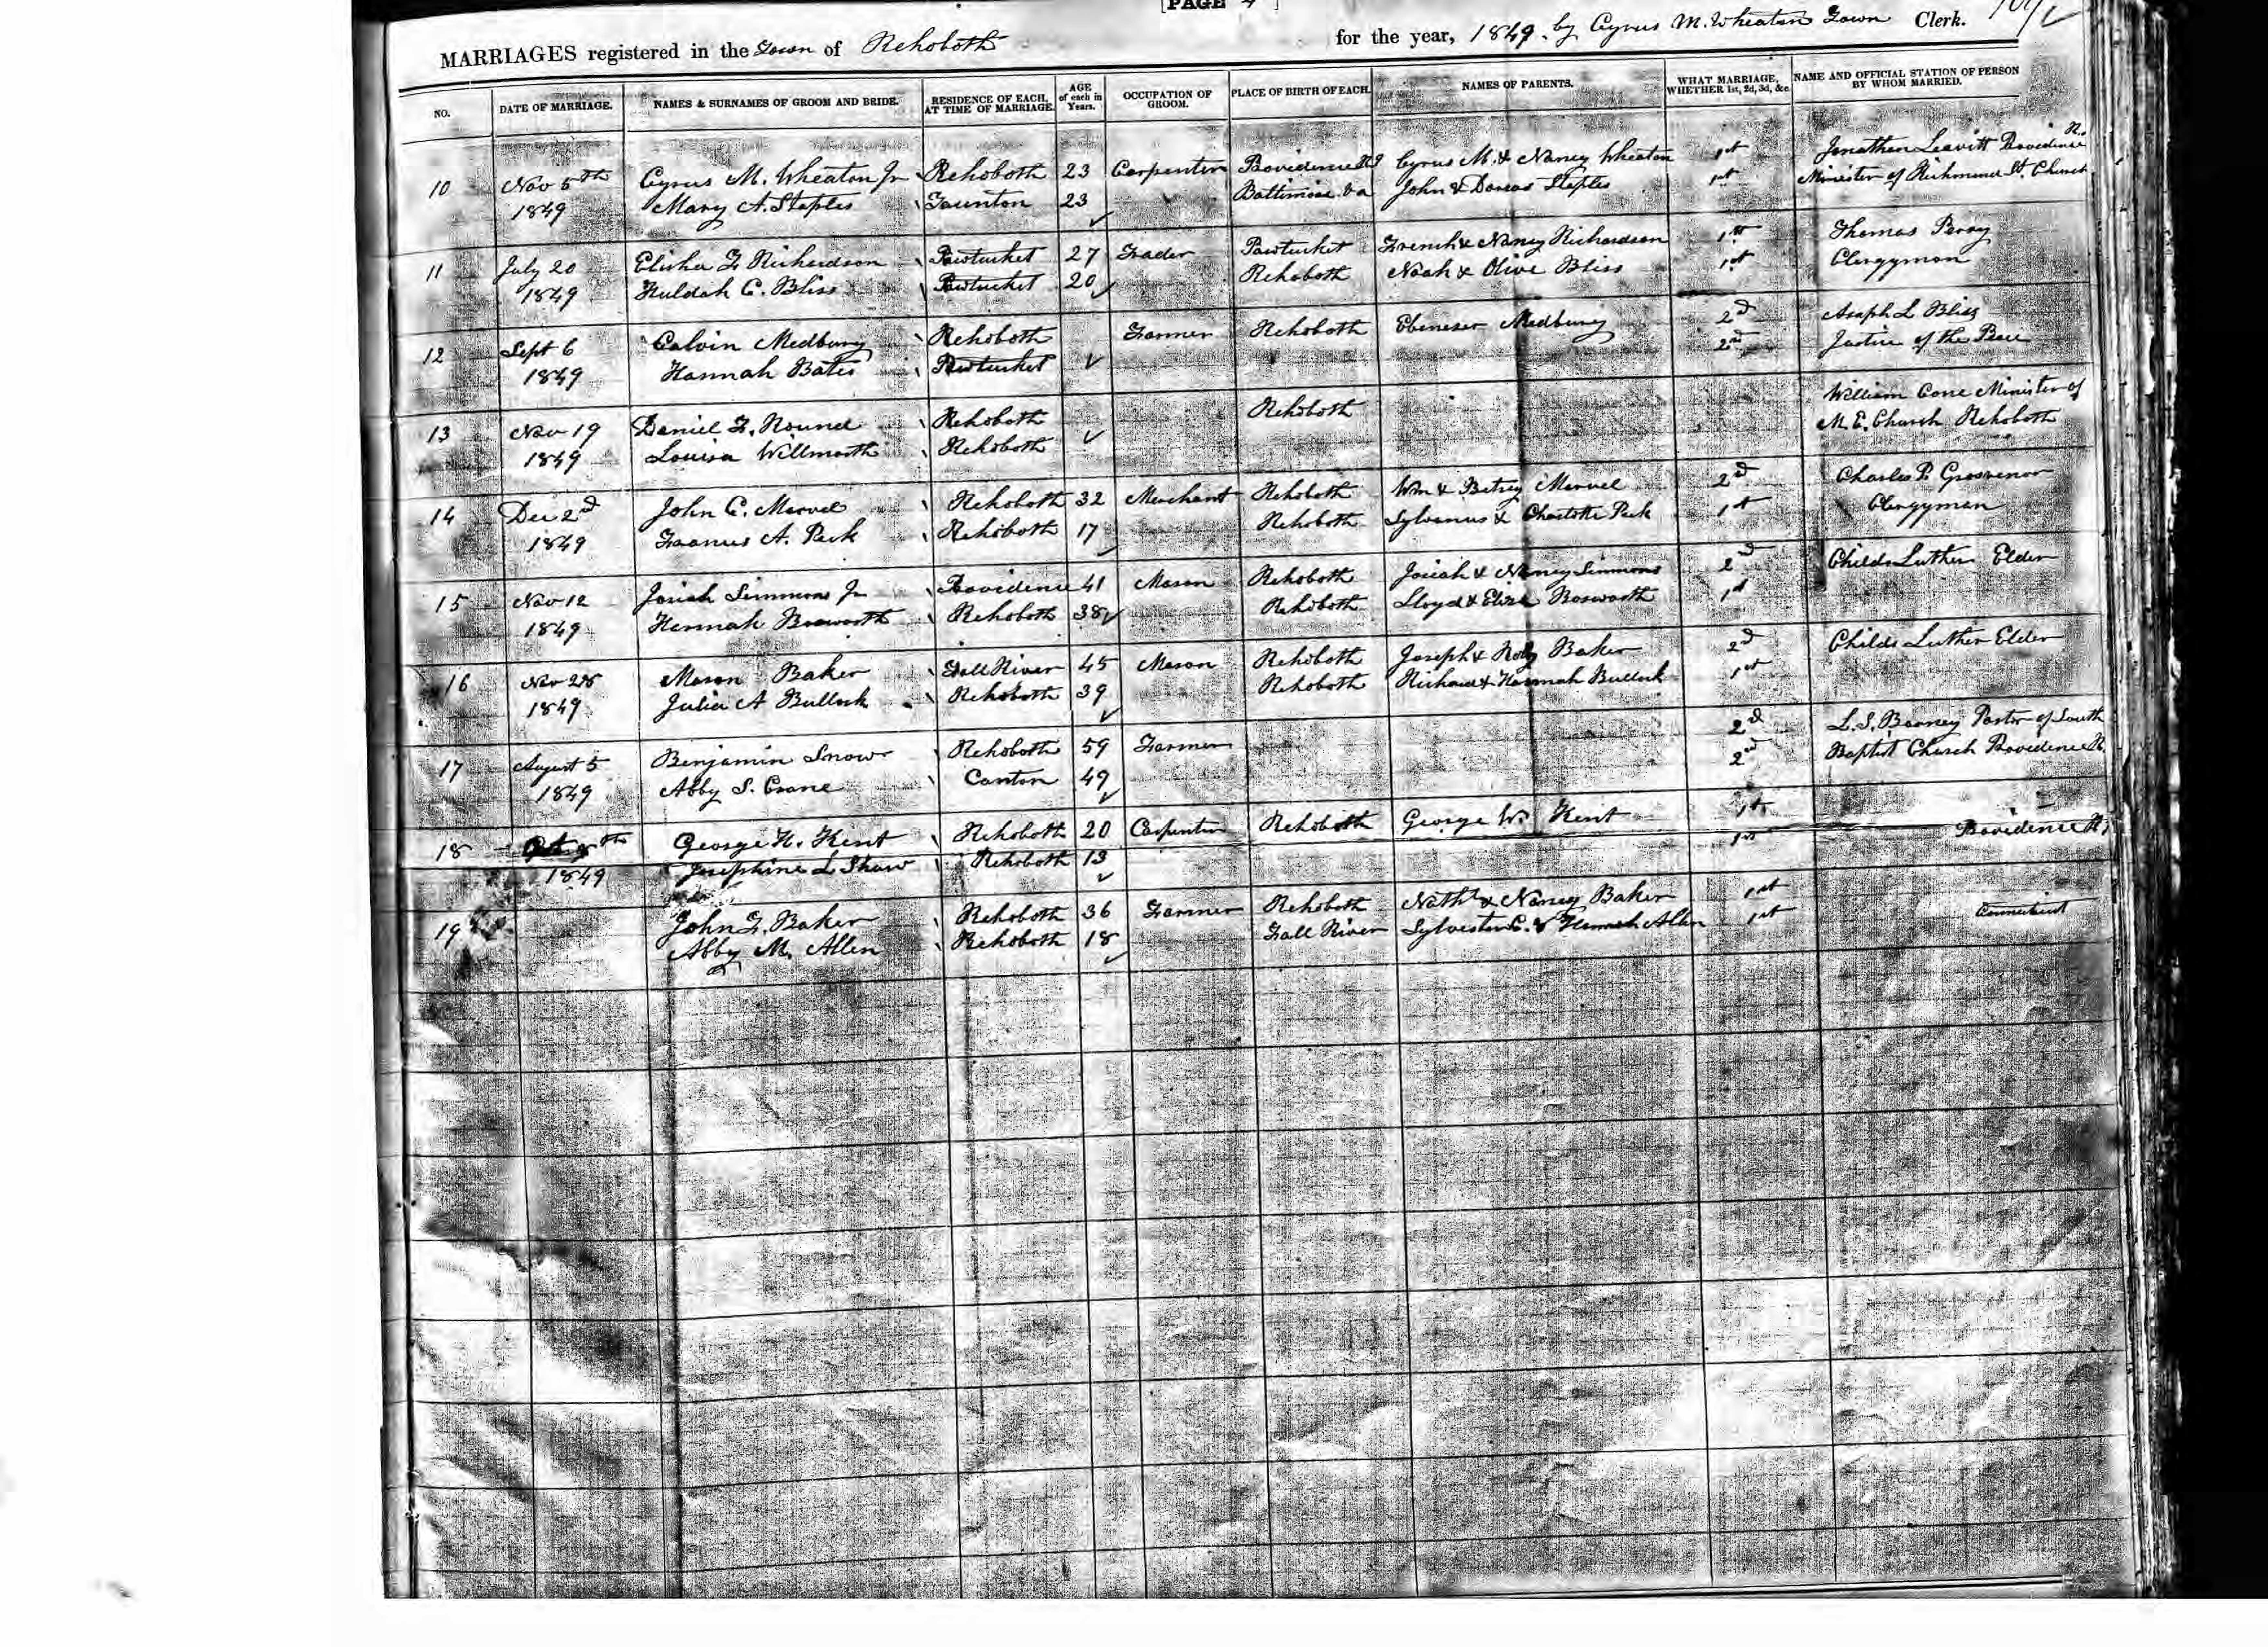 [PAGE 4 ]
MARRIAGES registered in the Town of Rehoboth for the year, 1849. by Cyrus M. Wheaton Town Clerk.
NO. DATE OF MARRIAGE. NAMES & SURNAMES OF GROOM AND BRIDE. RESIDENCE OF EACH, AT TIME OF MARRIAGE. AGE of each in Years. OCCUPATION OF GROOM. PLACE OF BIRTH OF EACH. NAMES OF PARENTS. WHAT MARRIAGE, WHETHER 1st, 2d, 3d, &c. NAME AND OFFICIAL STATION OF PERSON BY WHOM MARRIED.
10 Nov 5th Cyrus M. Wheaton Jr Rehoboth 23 Carpenter Providence RI Cyrus M. & Nancy Wheaton 1st Jonathan Leavitt Providence R.
1849 Mary A. Staples Taunton 23 Baltimore Va John & Dorcas Staples 1st Minister of Richmond St. Church
11 July 20 Elisha F. Richardson Pawtucket 27 Trader Pawtucket French & Nancy Richardson 1st Thomas Perry
1849 Huldah C. Bliss Pawtucket 20 Rehoboth Noah & Olive Bliss 1st Clergyman
12 Sept 6 Calvin Medbury Rehoboth Farmer Rehoboth Ebenezer Medbury 2d Asaph L Bliss
1849 Hannah Bates Pawtucket 2nd Justice of the Peace
13 Nov 19 Daniel F. Round Rehoboth Rehoboth William Cone Minister of
1849 Louisa Willmarth Rehoboth M. E. Church Rehoboth
14 Dec 2d John C. Marvel Rehoboth 32 Merchant Rehoboth Wm & Betsey Marvel 2d Charles P. Grosvenor
1849 Frances A. Peck Rehoboth 17 Rehoboth Sylvanus & Charlotte Peck 1st Clergyman
15 Nov 12 Josiah Simmons Jr Providence 41 Mason Rehoboth Josiah & Nancy Simmons 2d Childs Luther Elder
1849 Hannah Bosworth Rehoboth 38 Rehoboth Lloyd & Eliza Bosworth 1st
16 Nov 28 Mason Baker Fall River 45 Mason Rehoboth Joseph & Roby Baker 2d Childs Luther Elder
1849 Julia A Bullock Rehoboth 39 Rehoboth Richard & Hannah Bullock 1st
17 August 5 Benjamin Snow Rehoboth 59 Farmer 2d Pastor of South
1849 Abby S. Crane Canton 49 2nd Baptist Church Providence R.
18 George H. Kent Rehoboth 20 Carpenter Rehoboth George W. Kent 1st
1849 Josephine L Shaw Rehoboth 13 1st Providence R,
19 John F. Baker Rehoboth 36 Farmer Rehoboth Nathl & Nancy Baker 1st
Abby M. Allen Rehoboth 18 Fall River Sylvester C. & Hannah Allen 1st Connecticut